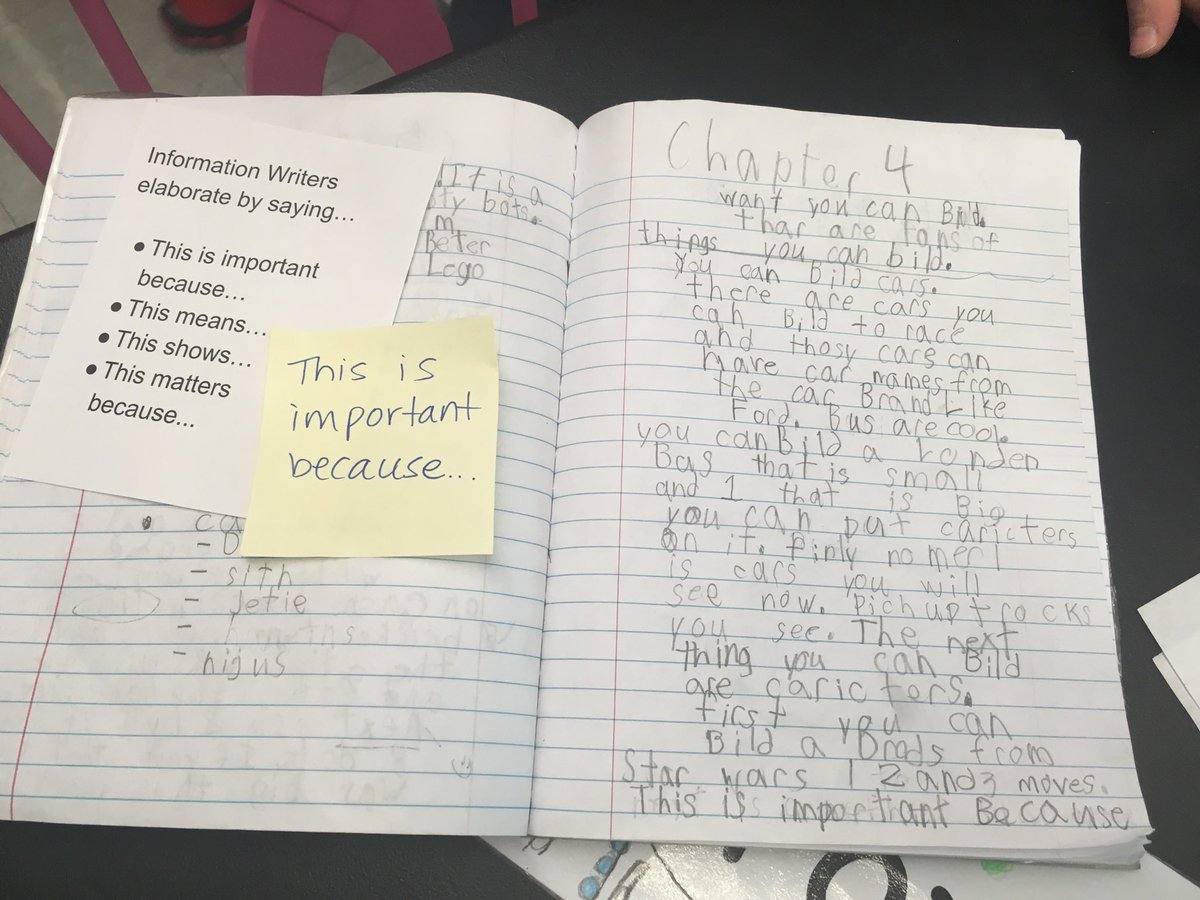 Information Writers
elaborate by saying...
• This is important
because...
• This means...
• This shows...
• This matters
because...
This is
important
because...
It is a
bots.
m
Beter
Lego
• ca
- D
- sith
- Jetie
-
- nijus
Chapter 4
want you can Bild.
thar are tons of
things you can bild.
you can Bild cars.
there are cars you
can Bild to race
and thosy care can
have car names from
the car Brand Like
Ford. Bus are cool.
you can Bild a London
Bus that is small
and 1 that is Big
you can put caricters
on it. Pinly nomer 1
is cars you will
see now. Pich up trocks
you see. The next
thing you can Bild
are carictors.
first you can
Bild a Drods from
Star wars 1 2 and 3 moves.
This is important Because